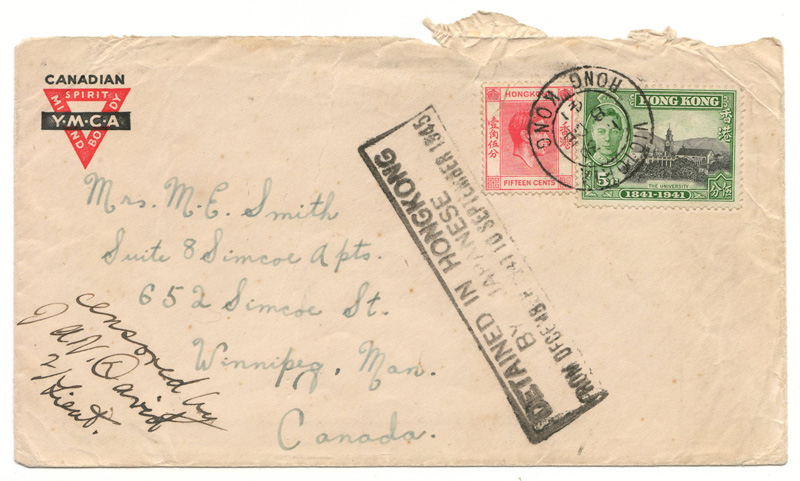 CANADIAN
SPIRIT
MIND BODY
Y·M·C·A
HONGKONG
壹角伍分
FIFTEEN CENTS
HONG KONG
香港
THE UNIVERSITY
1841-1941
伍分
VICTORIA
HONG KONG
DETAINED IN HONGKONG
BY JAPANESE
FROM TO SEPTEMBER 1945
Mrs. M. E. Smith
Suite 8 Simcoe Apts.
652 Simcoe St.
Winnipeg, Man.
Canada.
censored by
Davis
2/Lieut.